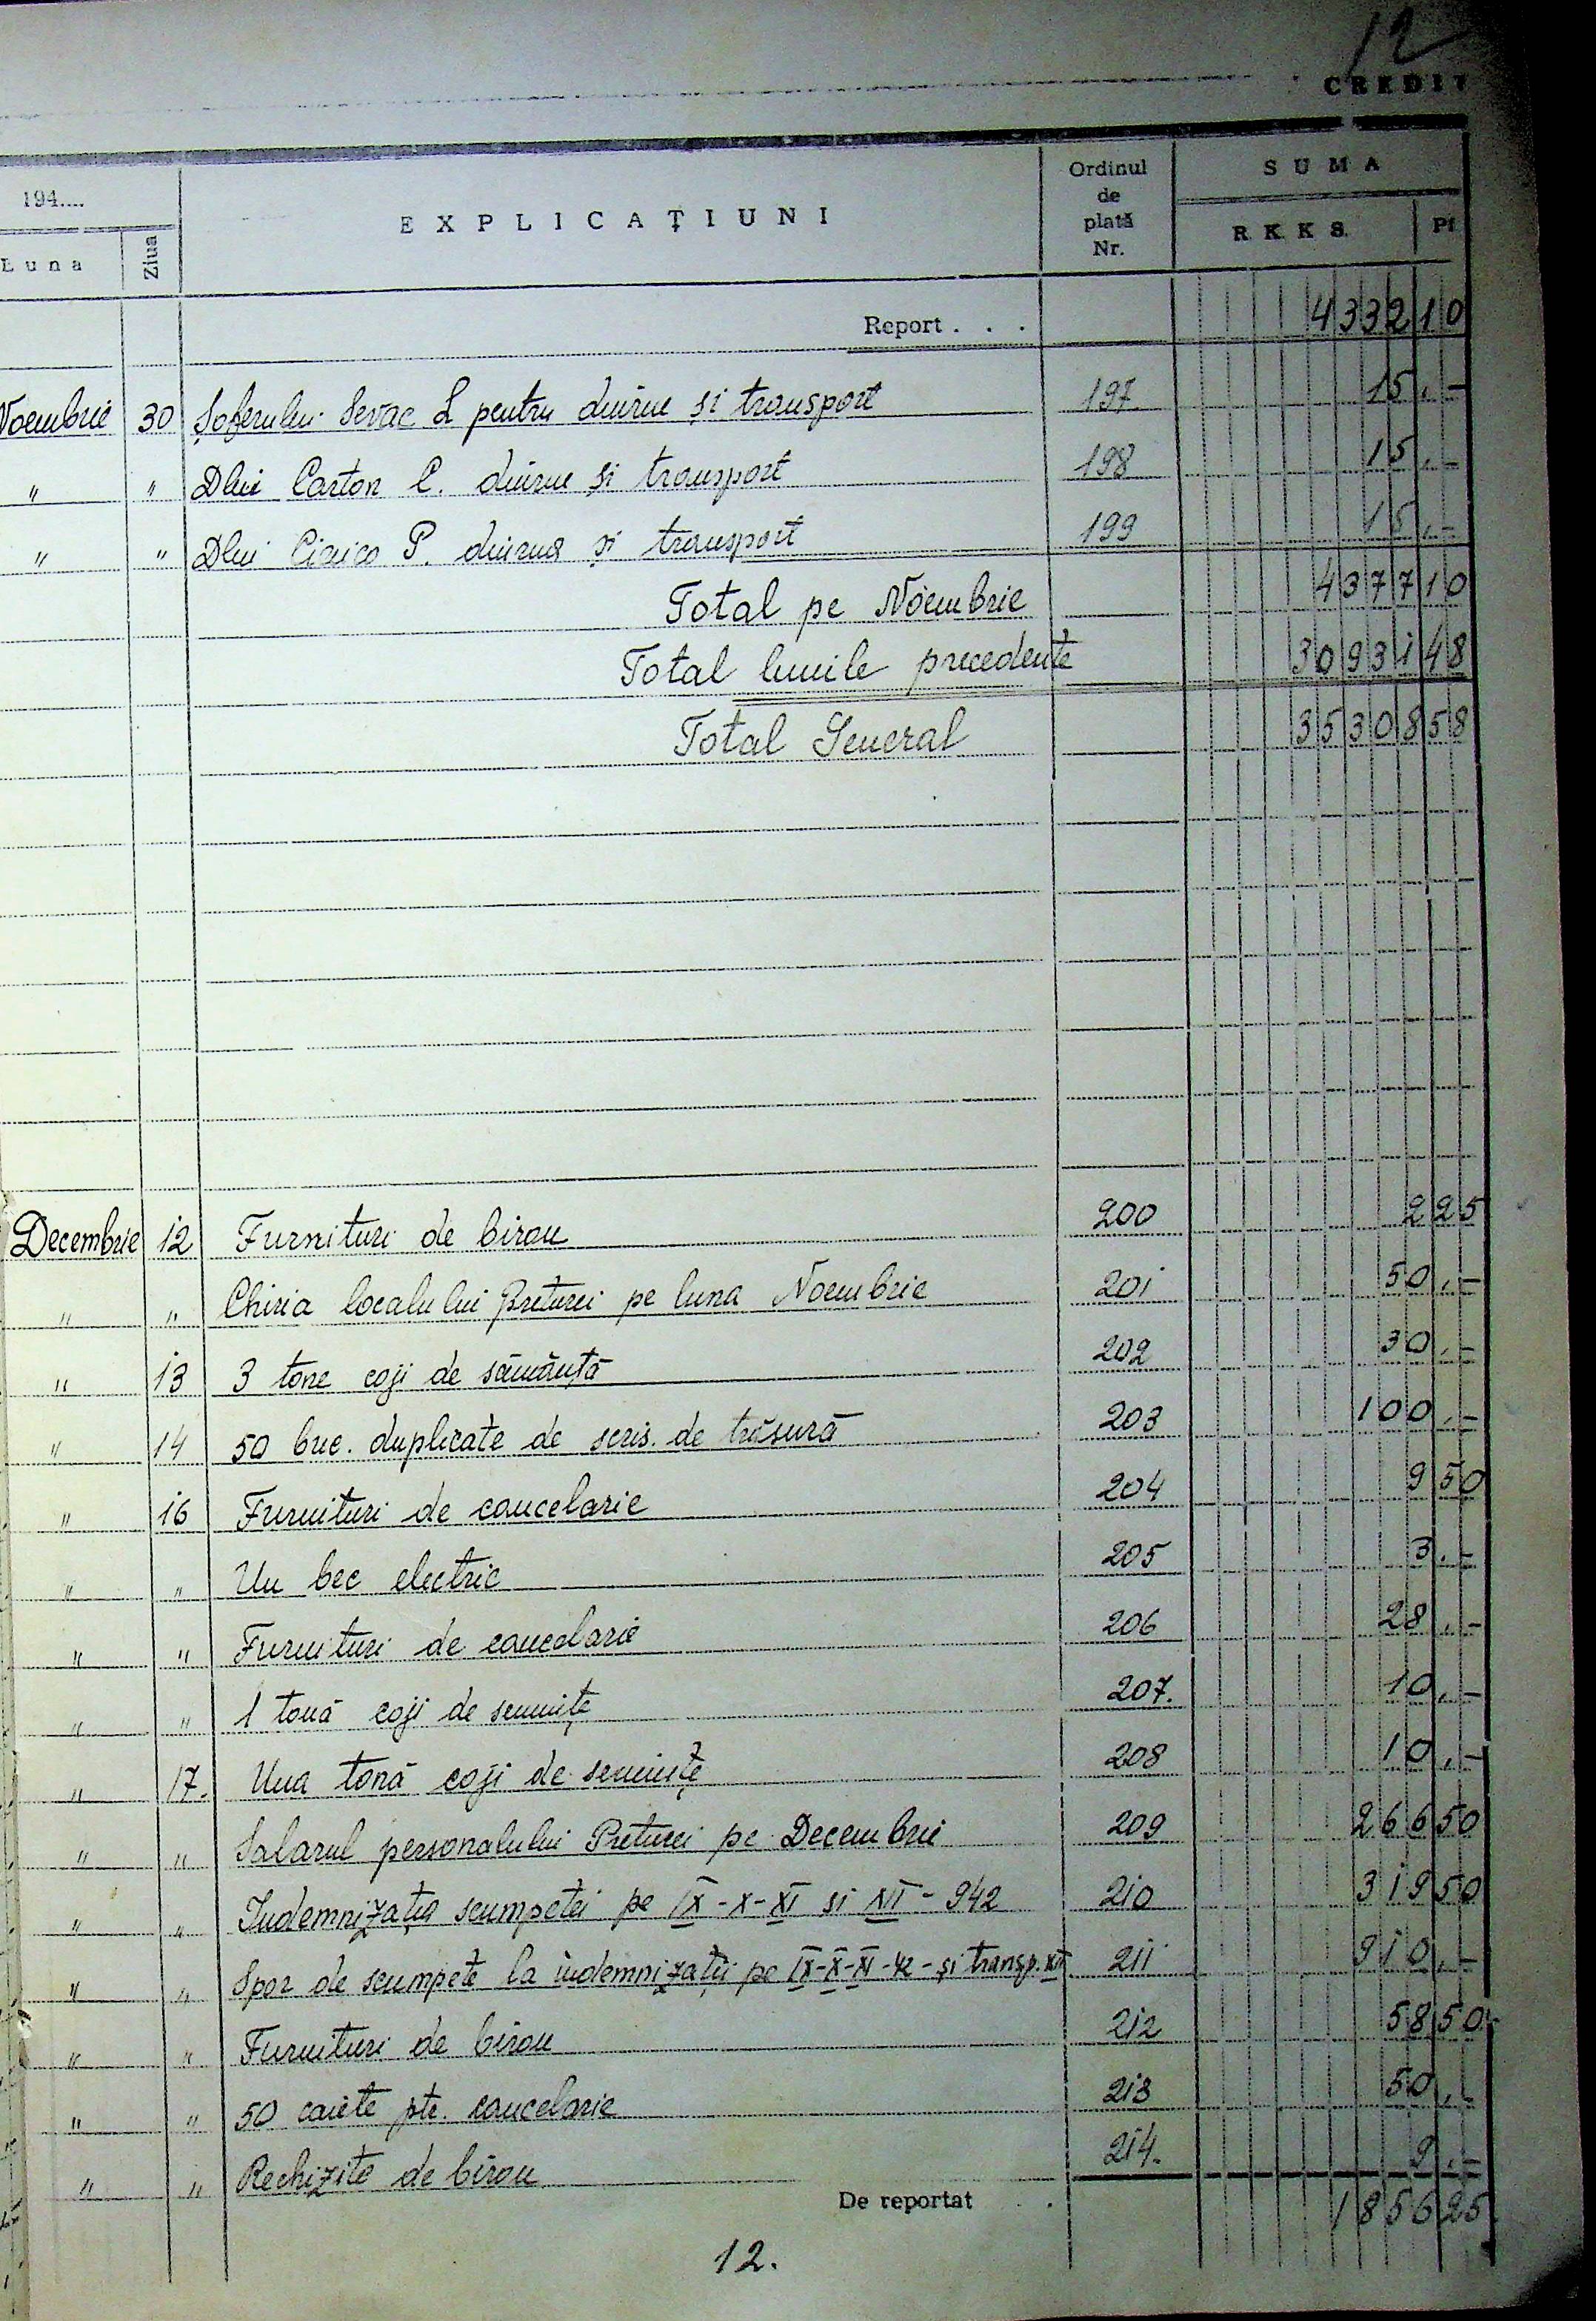 12
CREDIT
194....
Luna
Ziua
EXPLICAȚIUNI
Ordinul de plată Nr.
SUMA
R. K. K. S.
Pf
Report . . . 4332 10
Noembrie 30 Șoferului Sevac L pentru diurne și transport 197. 15,-
" " Dlui Carton C. diurne și transport 198 15,-
" " Dlui P. diurna și transport 199 15,-
Total pe Noembrie 4377 10
Total lunile precedente 30931 48
Total General 35308 58
Decembrie 12 Furnituri de birou 200 2 25
" " Chiria localului Preturei pe luna Noembrie 201 50,-
" 13 3 tone coji de sămânță 202 30,-
" 14 50 buc. duplicate de scris. de trăsură 203 100,-
" 16 Furnituri de cancelarie 204 9 50
" " Un bec electric 205 3,-
" " Furnituri de cancelarie 206 28,-
" " 1 tonă coji de semințe 207. 10,-
" 17. Una tonă coji de semințe 208 10,-
" " Salarul personalului Preturei pe Decembrie 209 266 50
" " Indemnizația scumpetei pe IX-X-XI si XII-942 210 319 50
" " Spor de scumpete la indemnizații pe IX-X-XI-42-și transp. XII. 211 910,-
" " Furnituri de birou 212 58 50
" " 50 caiete ptr. cancelarie 213 50,-
" " Rechizite de birou 214. 9,-
De reportat . 1856 25
12.